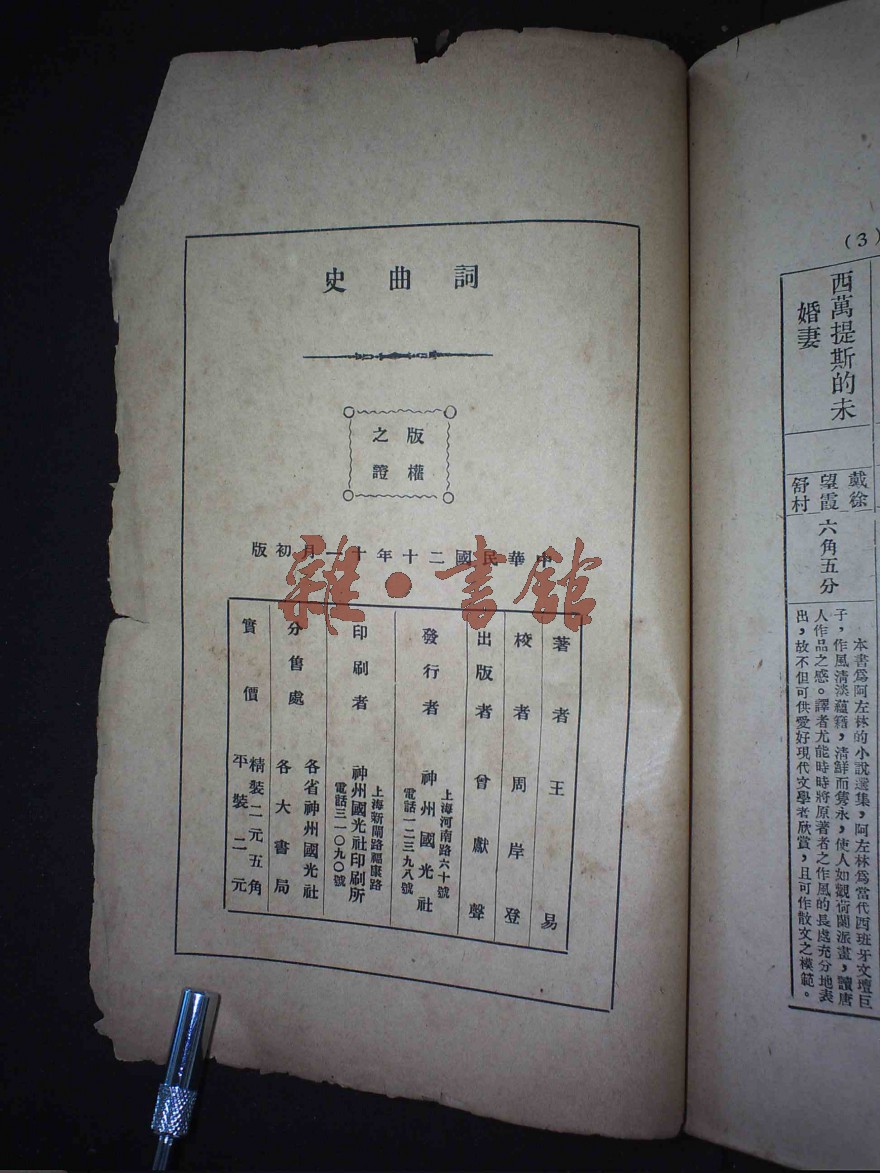 (3)
西萬提斯的未
婚妻
戴望舒
徐霞村
六角五分
本書爲阿左林的小說選集，阿左林爲當代西班牙文壇巨
子，作風清淡蘊籍，清鮮而雋永，使人如觀荷蘭派畫，讀唐
人作品之感。譯者尤能時時將原著者之作風的長處充分地表
出，故不但可供愛好現代文學者欣賞，且可作散文之模範。
詞曲史
版權
之證
中華民國二十年十一月初版
著者王易
校者周岸登
出版者曾獻聲
發行者
上海河南路六十號
神州國光社
電話一二三九八號
印刷者
上海新閘路福康路
神州國光社印刷所
電話三一〇九〇號
分售處
各省神州國光社
各大書局
實價
精裝二元五角
平裝二元
雜·書館